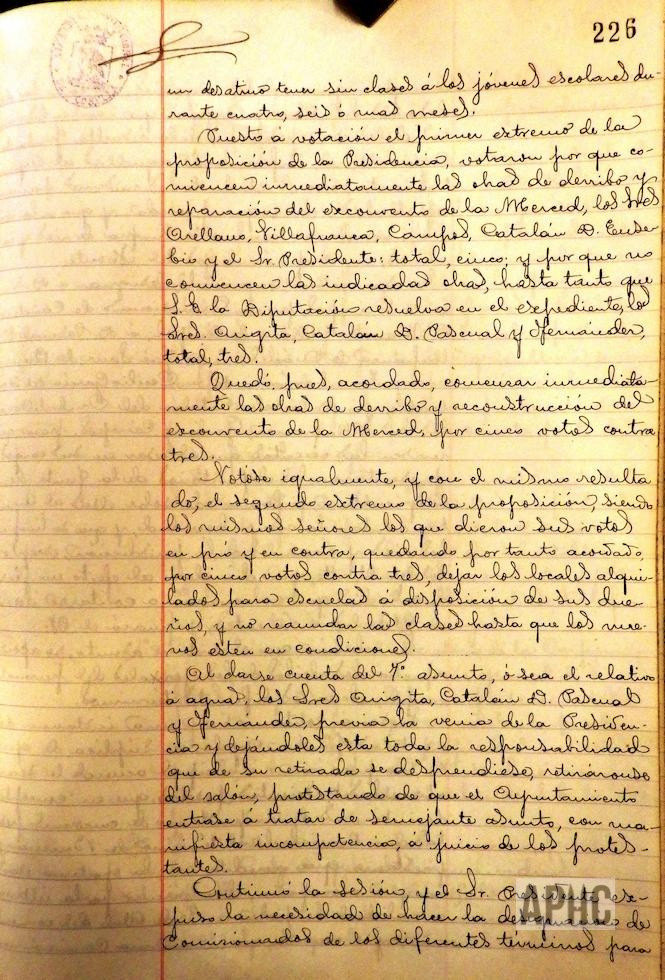 226
un desatino tener sin clases á los jóvenes escolares du-
rante cuatro, seis ó mas meses.
Puesto á votación el primer extremo de la
proposición de la Presidencia, votaron por que co-
miencen inmediatamente las obras de derribo y
reparación del exconvento de la Merced, los Sres
Orellano, Villafranca, Campos, Catalán D. Euse-
bio y el Sr. Presidente: total, cinco; y por que no
comiencen las indicadas obras, hasta tanto que
S. E. la Diputación resuelva en el expediente, los
Sres. Anigita, Catalán D. Pascual y Fernández,
total, tres.
Quedó, pues, acordado, comenzar inmediata-
mente las obras de derribo y reconstrucción del
exconvento de la Merced, por cinco votos contra
tres.
Votóse igualmente, y con el mismo resulta
do, el segundo extremo de la proposición, siendo
los mismos señores los que dieron sus votos
en pró y en contra, quedando por tanto acordado,
por cinco votos contra tres, dejar los locales alqui-
lados para escuelas á disposición de sus due-
ños, y no reanudar las clases hasta que los nue-
vos esten en condiciones.
Al darse cuenta del 7º asunto, ó sea el relativo
á aguas, los Sres Anigita, Catalán D. Pascual
y Fernández, previa la venia de la Presiden-
cia y dejándoles esta toda la responsabilidad
que de su retirada se desprendiese, retiráronse
del salón, protestando de que el Ayuntamiento
entrase á tratar de semejante asunto, con ma-
nifiesta incompetencia, á juicio de los protes-
tantes.
Continuó la sesión, y el Sr. Presidente ex-
puso la necesidad de hacer la designación de
Comisionados de los diferentes términos para
APHC